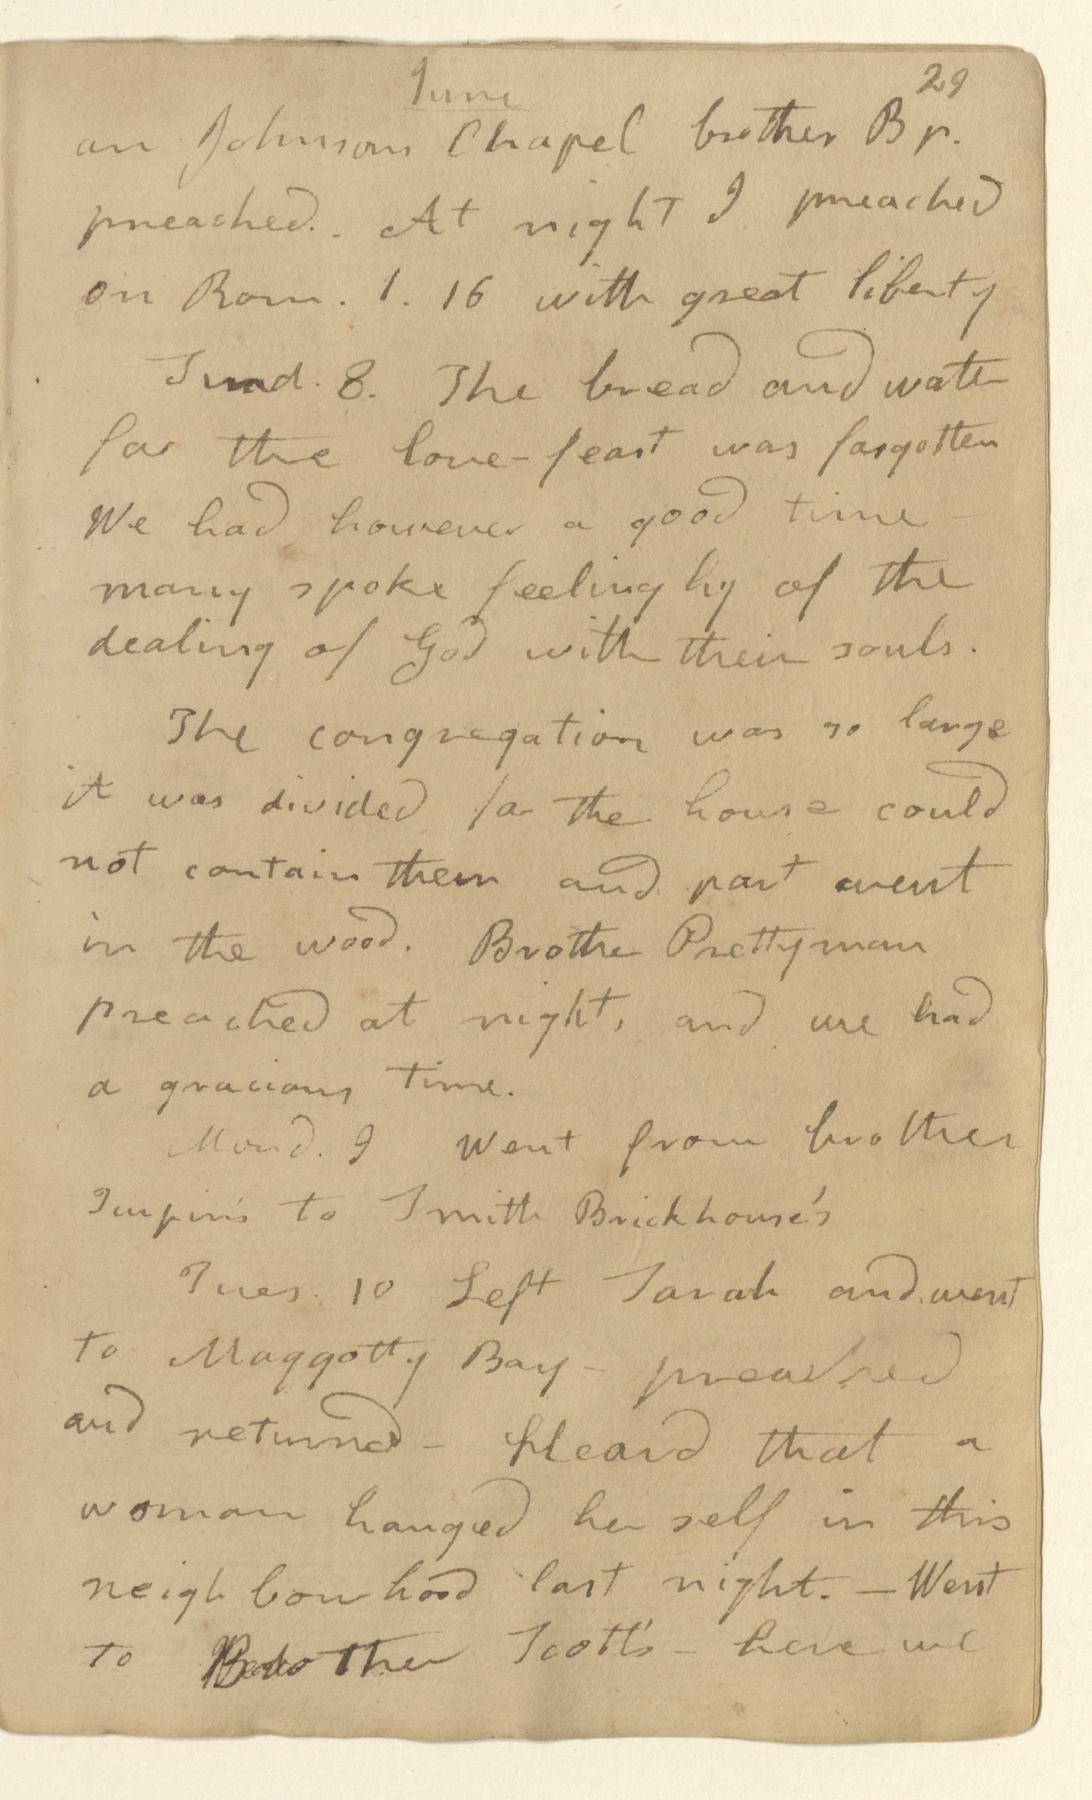 June 29
an Johnson Chapel brother B p.
preached.. At night I preached
on Rom. 1. 16 with great liberty
Sund. 8. The bread and wate
for the love-feast was forgotten
We had however a good time -
many spoke feelingly of the
dealing of God with their souls.
The congregation was so large
it was divided for the house could
not contain them and part went
in the wood. Brothe Prettyman
preached at night, and we had
a gracious time.
Mond. 9 Went from brother
Turpin's to Smith Brickhouse's
Tues. 10 Left Sarah and went
to Maggotty Bay - preached
and returned - Heard that a
woman hanged her self in this
neighbourhood last night. - Went
to Brother Scott's - here we